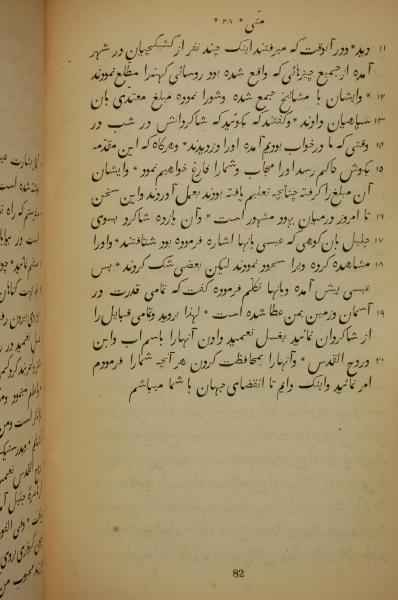 متّی * ۲۸ *
۱۱ دید * و در آنوقت که میرفتند اینک چند نفر از کشیکچیان در شهر
آمده از جمیع چیزهائی که واقع شده بود روسائی کهنه را مطلع نمودند
۱۲ * و ایشان با مشائخ جمع شده و شورا نموده مبلغ معتدی بان
۱۳ سپاهیان دادند * و گفتند که بگوئید که شاگردانش در شب در
۱۴ وقتی که ما در خواب بودیم آمده او را دزدیدند * و هرگاه که این مقدمه
۱۵ بگوش حاکم رسد او را مجاب و شما را فارغ خواهیم نمود * و ایشان
آن مبلغ را گرفته چنانچه تعلیم یافته بودند بعمل آوردند و این سخن
۱۶ تا امروز درمیان یهود مشهور است * و آن یازده شاگرد بسوی
۱۷ جلیل بان کوهی که عیسی بانها اشاره فرموده بود شتافتند * و او را
۱۸ مشاهده کرده ویرا سجود نمودند لیکن بعضی شک کردند * پس
عیسی پیش آمده و بانها تکلم فرموده گفت که تمامی قدرت در
۱۹ آسمان و زمین بمن عطا شده است * لهذا بروید و تمامی قبایل را
از شاگردان نمائید بغسل تعمید دادن آنها را باسم اب و ابن
۲۰ و روح القدس * و آنها را بمحافظت کردن هر آنچه شما را فرمودم
امر نمائید و اینک دایم تا انقضای جهان با شما میباشم
82